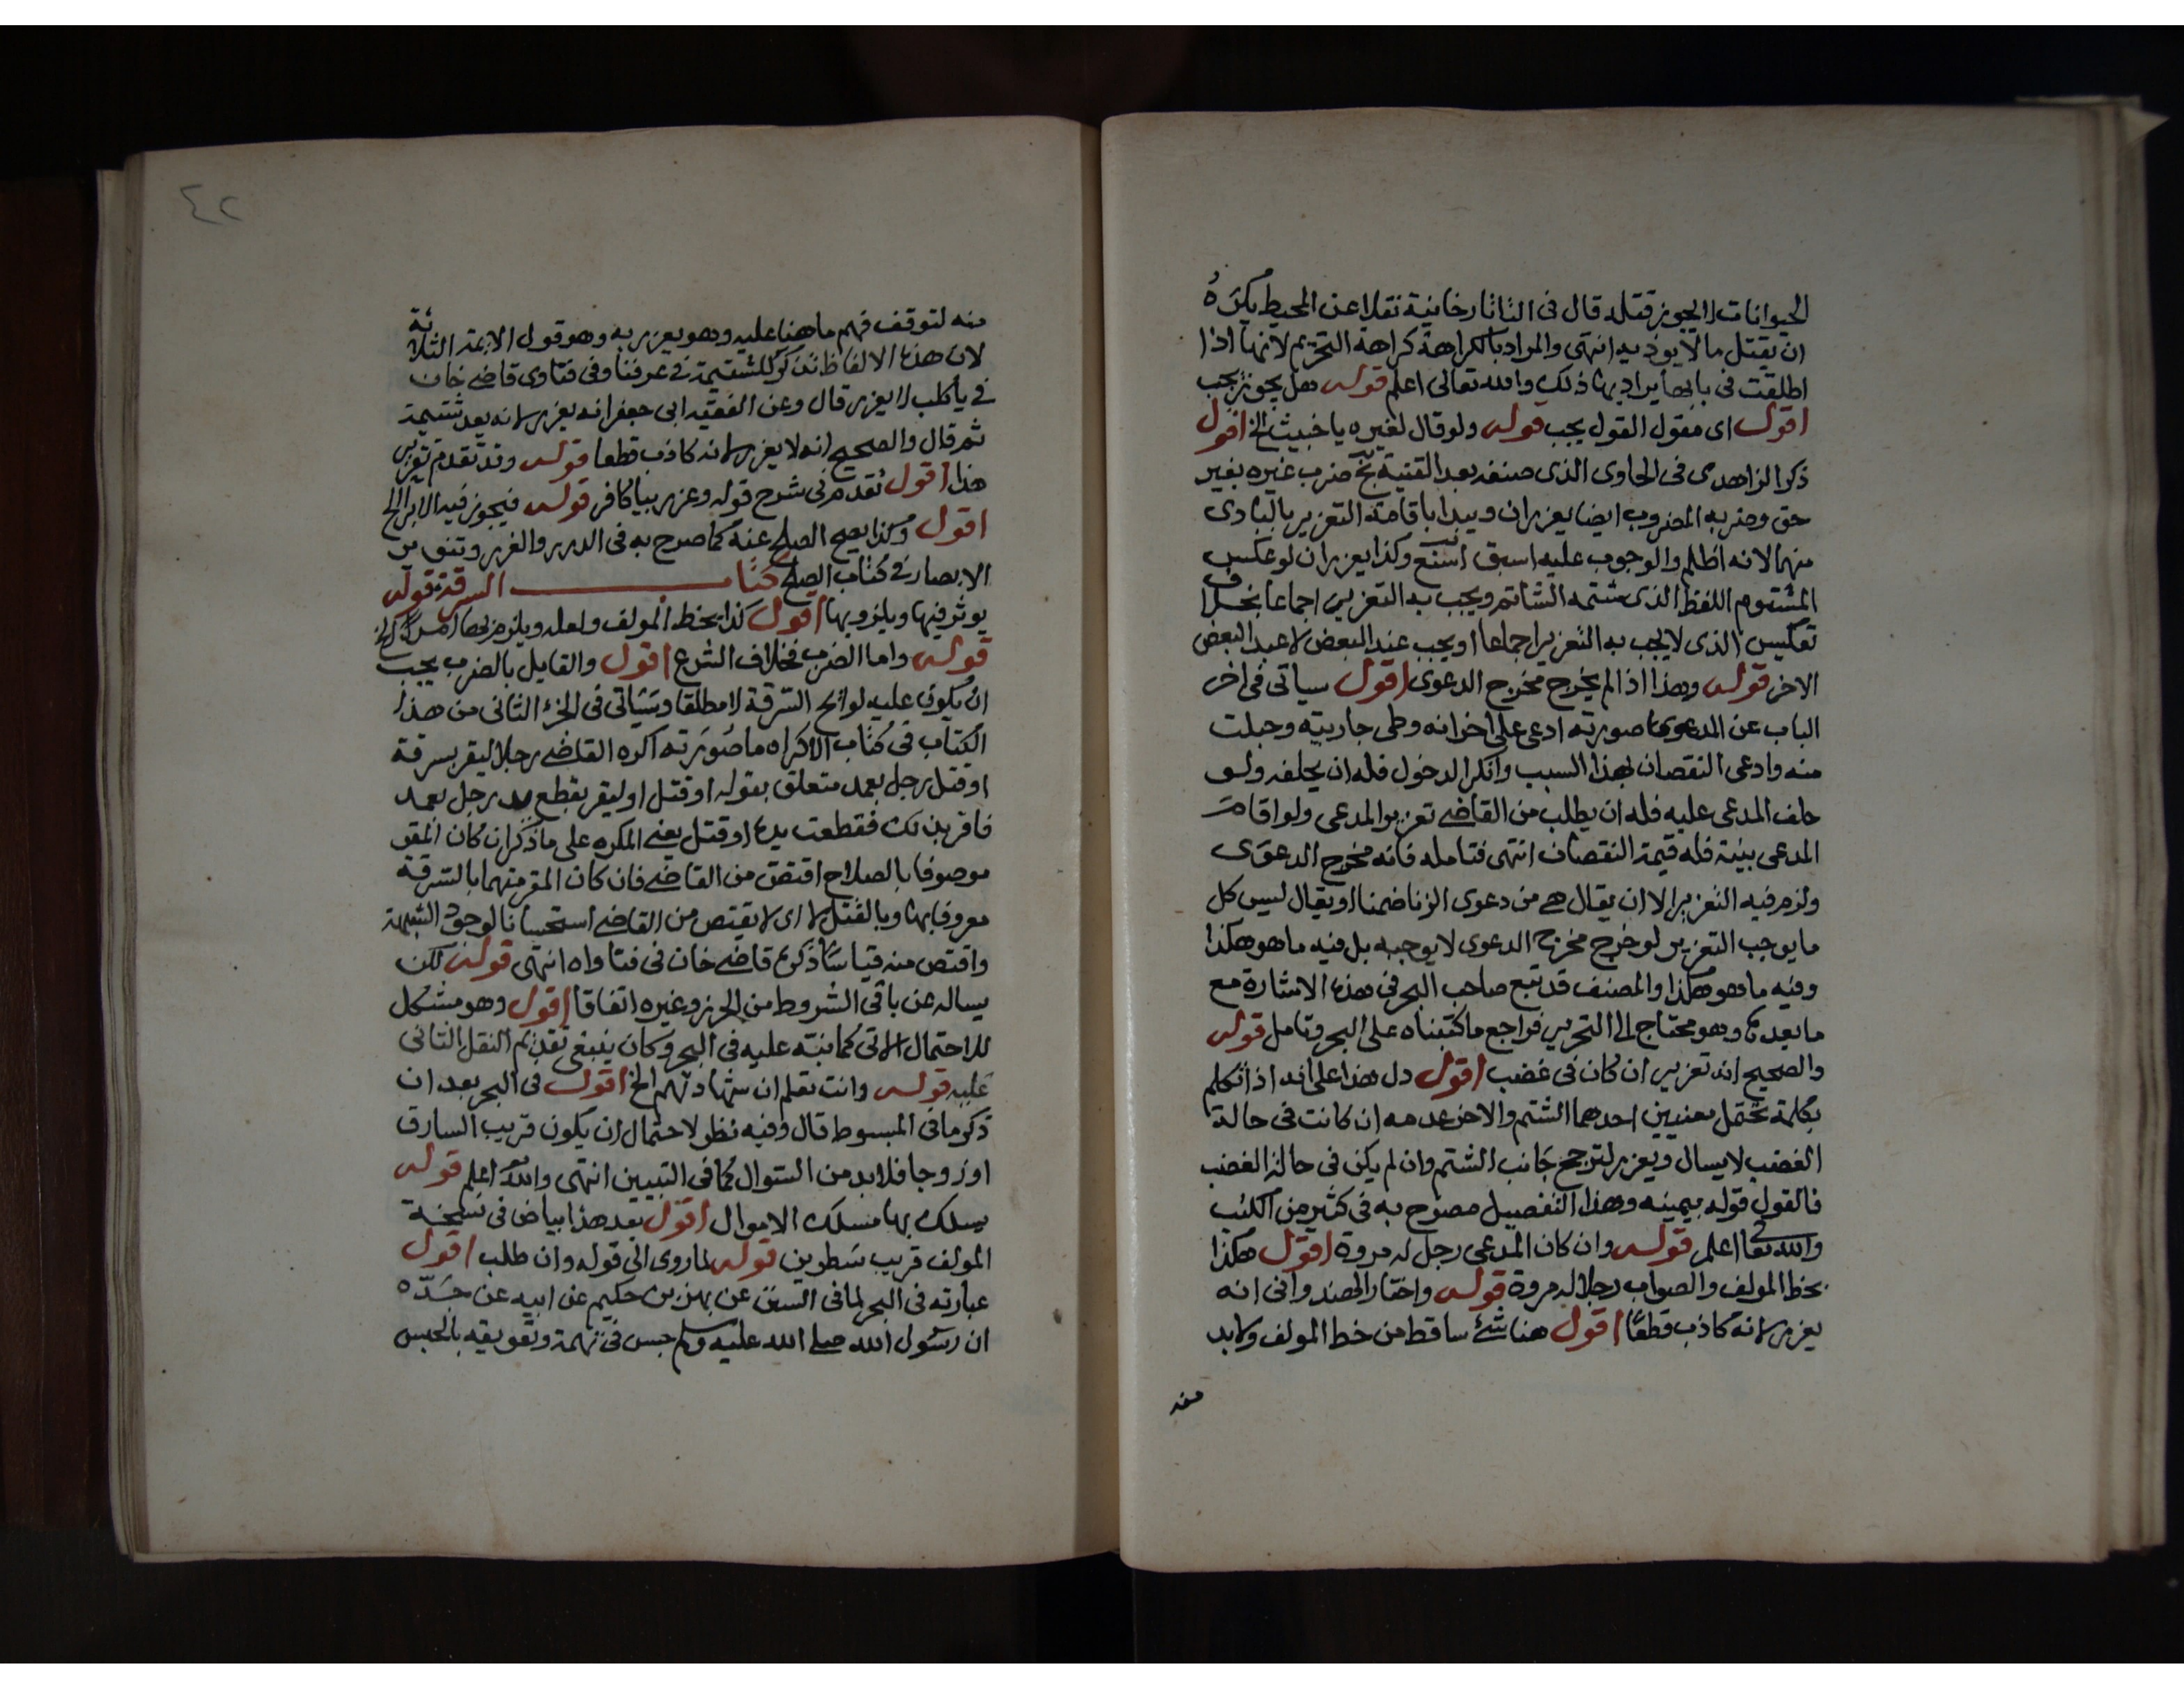 الحيوانات لا يجوز قتله قال فى التاتارخانية نقلا عن المحيط يكره
ان يقتل ما لا يوذيه انتهى والمراد بالكراهة كراهة التحريم لانها اذا
اطلقت فى بابها يراد بها ذلك والله تعالى اعلم قوله هل يجوز يجب
اقول اى مقول القول يجب قوله ولو قال لغيره يا خبيث الخ اقول
ذكر الزاهدى فى الحاوى الذى صنفه بعد القنية بخ ضرب غيره بغير
حق وضربه المضروب ايضا يعزران ويبدا باقامة التعزير بالبادى
منهما لانه اظلم والوجوب عليه اسبق وكذا يعزران لو عكس
المشتوم اللفظ الذى شتمه الشاتم ويجب به التعزير اجماعا بخلاف
تعكيس الذى لا يجب به التعزير اجماعا او يجب عند البعض لا عند البعض
الاخر قوله وهذا اذا لم يخرج مخرج الدعوى اقول سياتى فى اخر
الباب عن المدعوى ما صورته ادعى على اخر انه وطى جاريته وحبلت
منه وادعى النقصان بهذا السبب وانكر الدخول فله ان يحلفه ولو
حلف المدعى عليه فله ان يطلب من القاضى تعزير المدعى ولو اقام
المدعى بينة فله قيمة النقصان انتهى فتامله فانه مخرج الدعوى
ولزم فيه التعزير الا ان يقال هى من دعوى الزنا ضمنا او يقال ليس كل
ما يوجب التعزير لو خرج مخرج الدعوى لا يوجبه بل فيه ما هو هكذا
وفيه ما هو هكذا والمصنف قد تبع صاحب البحر فى هذه الاشارة مع
ما بعده وهو محتاج الى التحرير فراجع ما كتبناه على البحر وتامل قوله
والصحيح انه تعزير ان كان فى غضب اقول دل هذا على انه اذا تكلم
بكلمة تحتمل معنيين احدهما الشتم والاخر عدمه ان كانت فى حالة
الغضب لا يسال ويعزر لترجح جانب الشتم وان لم يكن فى حالة الغضب
فالقول قوله بيمينه وهذا التفصيل مصرح به فى كثير من الكتب
والله تعالى اعلم قوله وان كان المدعى رجل له مروة اقول هكذا
بخط المولف والصواب رجلا له مروة قوله واختار الهندوانى انه
يعزر لانه كاذب قطعا اقول هنا شئ ساقط من خط المولف ولابد
منه
٤٢
منه لتوقف فهم ما هنا عليه وهو يعزر به وهو قول الايمة الثلاثة
لان هذه الالفاظ تذكر للشتيمة فى عرفنا وفى فتاوى قاضى خان
فى يا كلب لا يعزر قال وعن الفقيه ابى جعفر انه يعزر لانه يعد شتيمة
ثم قال والصحيح انه لا يعزر لانه كاذب قطعا قوله وقد تقدم تعزير
هذا اقول تقدم فى شرح قوله وعزر بيا كافر قوله فيجوز فيه الابرا الخ
اقول وكذا يصح الصلح عنه كما صرح به فى الدرر والغرر وتنوير
الابصار فى كتاب الصلح كتاب السرقة قوله
يوثر فيها ويلزو بها اقول كذا بخط المولف ولعله ويلزم بها
قوله واما الضرب فخلاف الشرع اقول والقايل بالضرب يجب
ان يكون عليه لوائح السرقة لا مطلقا وسياتى فى الجزء الثانى من هذا
الكتاب فى كتاب الاكراه ما صورته اكره القاضى رجلا ليقر بسرقة
او قتل رجل بعمد متعلق بقوله او قتل او ليقر بقطع يد رجل بعمد
فاقر بذلك فقطعت يده او قتل يعنى المكره على ما ذكر ان كان المقر
موصوفا بالصلاح اقتص من القاضى فان كان المقر متهما بالسرقة
معروفا بها وبالقتل لا اى لا يقتص من القاضى استحسانا لوجود الشبهة
واقتص منه قياسا ذكره قاضى خان فى فتاواه انتهى قوله لكن
يساله عن باقى الشروط من الحرز وغيره اتفاقا اقول وهو مشكل
للاحتمال الاتى كما نبه عليه فى البحر وكان ينبغى تقديم النقل الثانى
عليه قوله وانت تعلم ان شهادتهم الخ اقول فى البحر بعد ان
ذكر ما فى المبسوط قال وفيه نظر لاحتمال ان يكون قريب السارق
او زوجا فلابد من السوال كما فى التبيين انتهى والله اعلم قوله
يسلك بها مسلك الاموال اقول بعد هذا بياض فى نسخة
المولف قريب سطرين قوله لما روى الى قوله وان طلب اقول
عبارته فى البحر لما فى السنن عن بهز بن حكيم عن ابيه عن جده
ان رسول الله صلى الله عليه وسلم حبس فى تهمة وتعويقه بالحبس